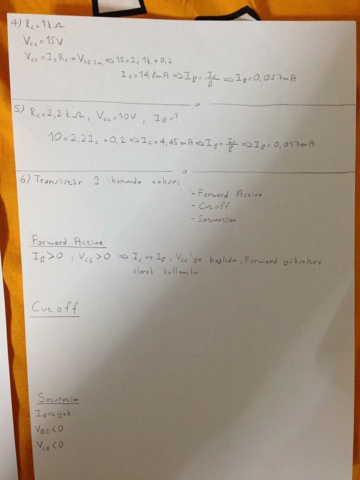 4) Rc=1kΩ
Vcc=15V
Vcc=IcRc+VCE sat⇒15=Ic 1k+0,2
Ic=14,8mA⇒IB=Ic/β⇒IB=0,057mA
5) Rc=2,2kΩ, Vcc=10V, IB=?
10=2,2Ic+0,2⇒Ic=4,45mA⇒IB=Ic/β⇒IB=0,017mA
6) Transistör 3 kısımda çalışır,
- Forward Active
- Cutoff
- Saturasion
Forward Active
IB>0, VCE>0 ⇒ Ic ve IB, VCE'ye bağlıdır, Forward yükselteç
olarak kullanılır
Cutoff
Saturasion
VBE<0
VCB<0